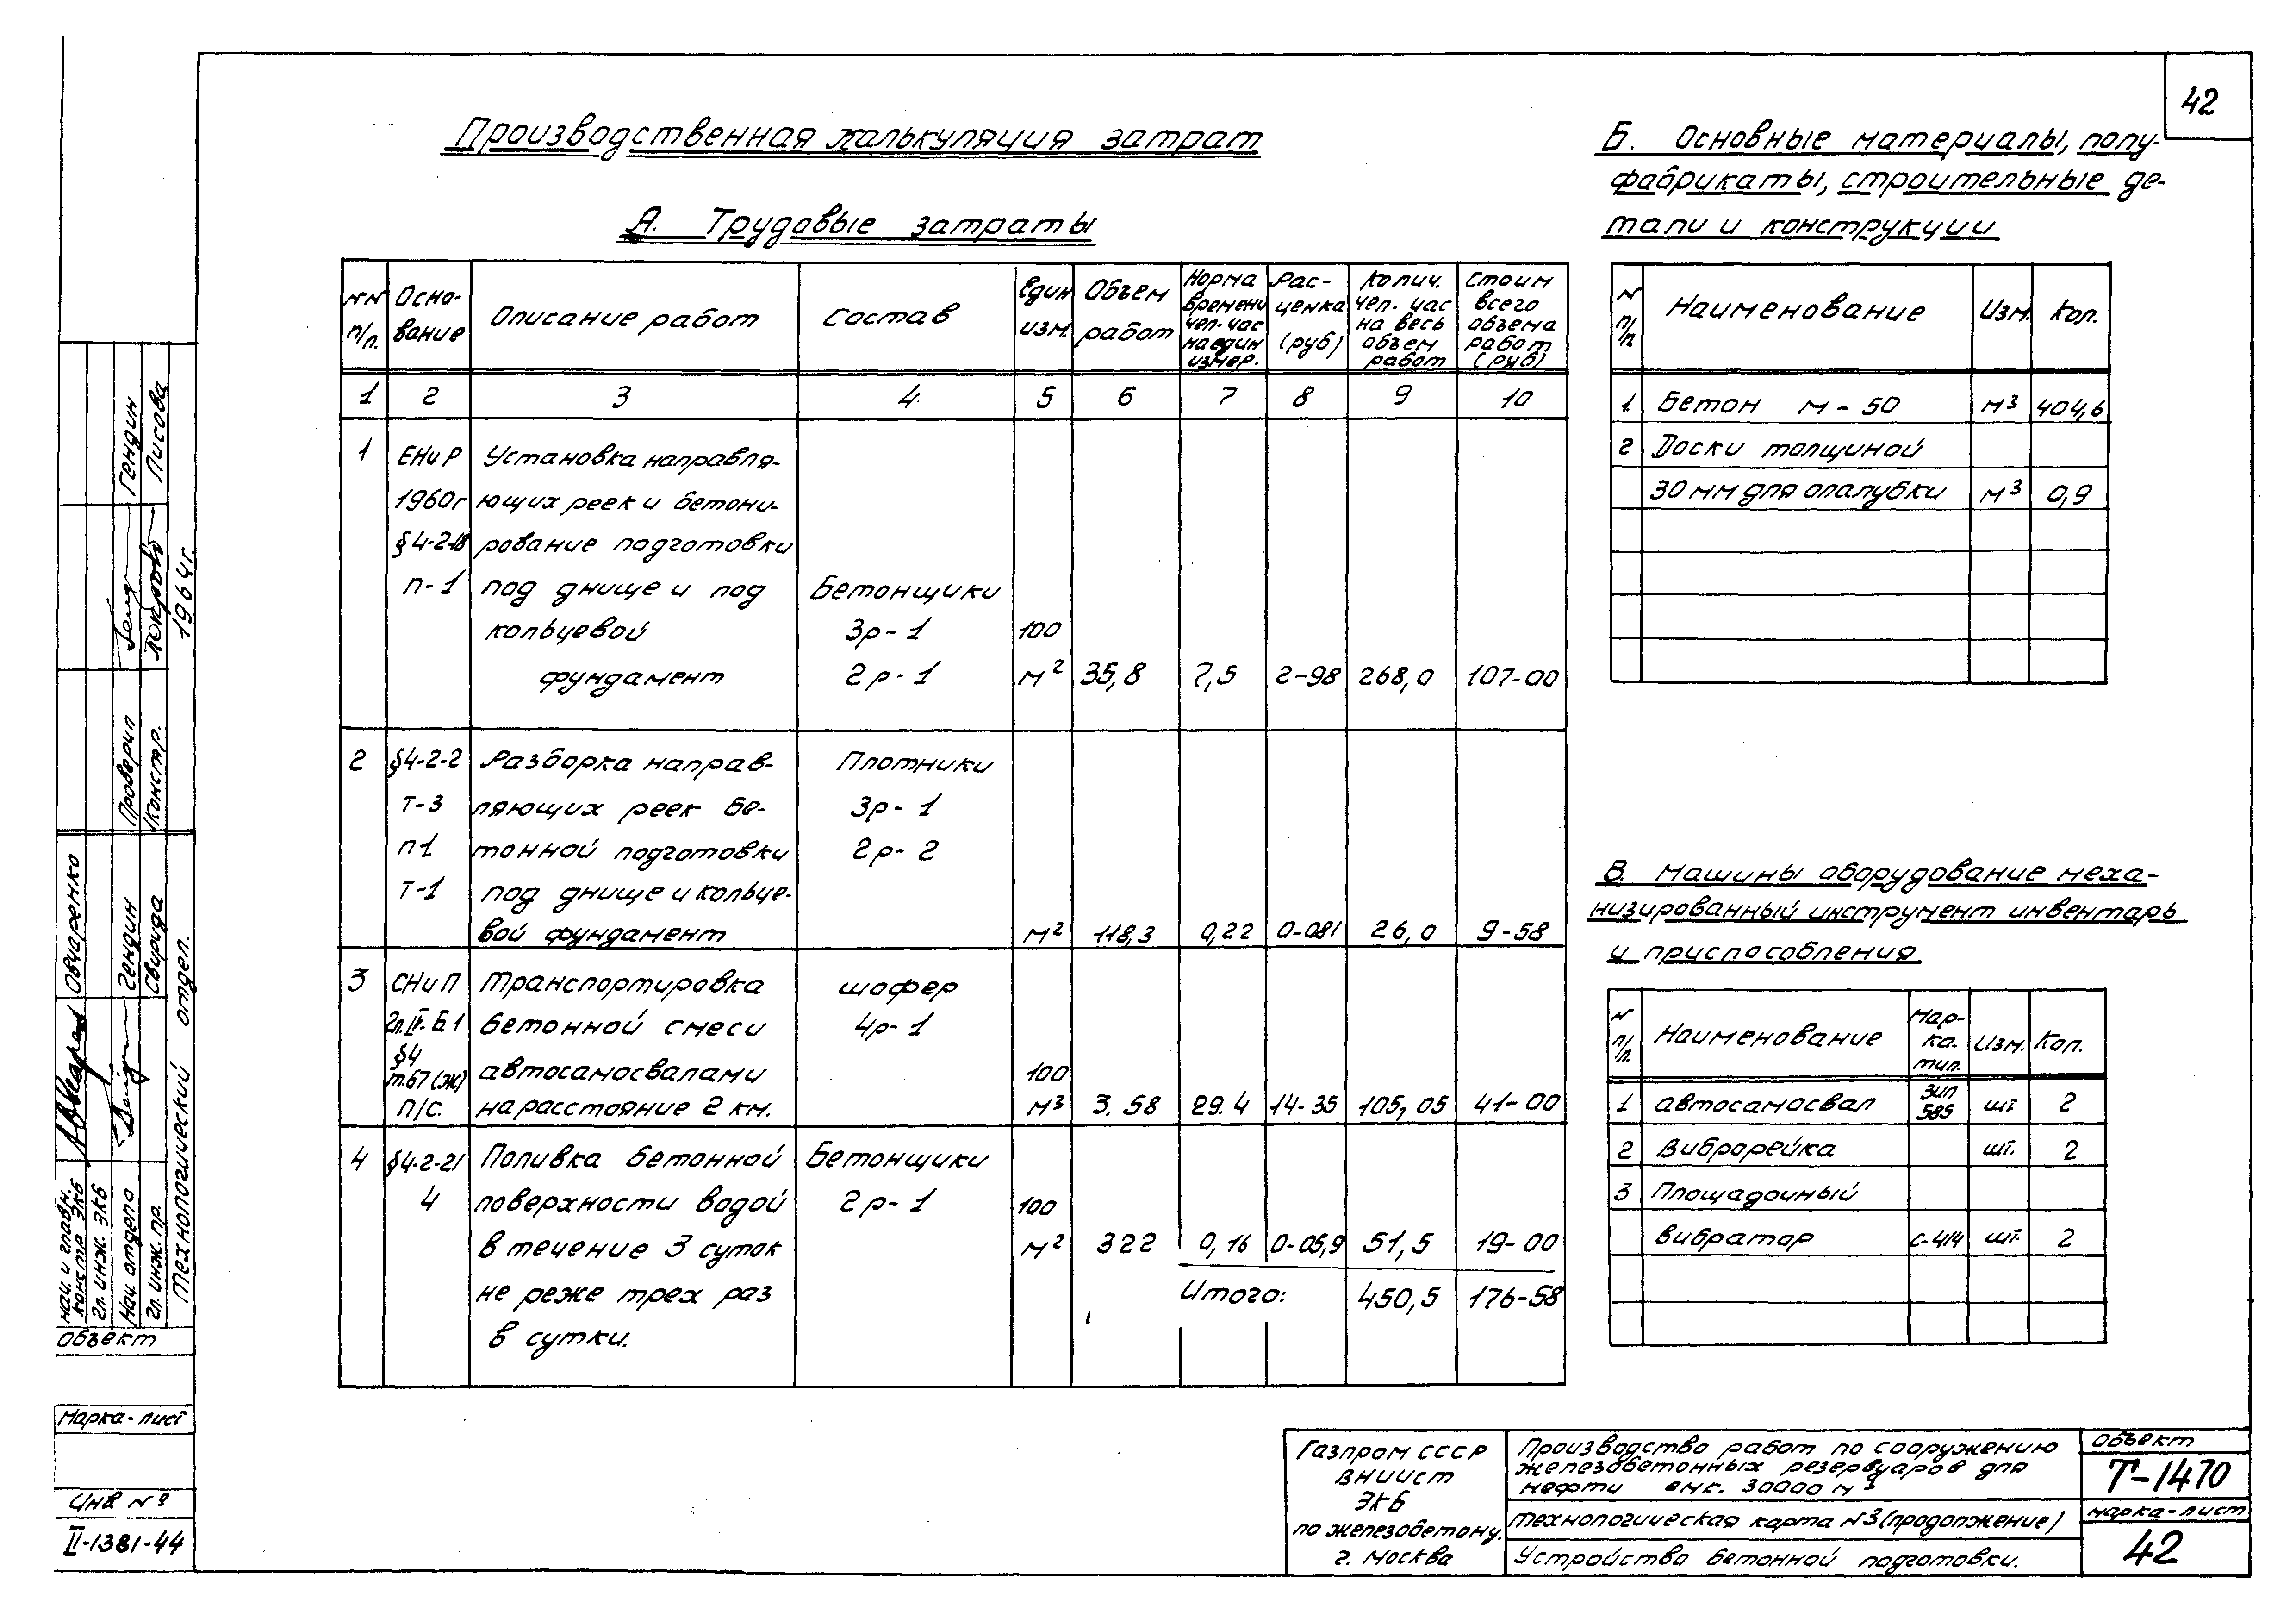 42
Производственная калькуляция затрат
А. Трудовые затраты
NN п/п.
Осно-
вание
Описание работ
Состав
Един
изм.
Объем
работ
Норма
времени
чел-час
на един
измер.
Рас-
ценка
(руб)
Колич.
чел. час
на весь
объем
работ
Стоим
всего
объема
работ
(руб)
1 2 3 4 5 6 7 8 9 10
1 ЕНиР Установка направля-
1960г ющих реек и бетони-
§4-2-18 рование подготовки
п-1 под днище и под Бетонщики
кольцевой 3р-1 100
фундамент 2р-1 м² 35,8 7,5 2-98 268,0 107-00
2 §4-2-2 Разборка направ- Плотники
Т-3 ляющих реек бе- 3р-1
п1 тонной подготовки 2р-2
Т-1 под днище и кольце-
вой фундамент м² 118,3 0,22 0-081 26,0 9-58
3 СНиП Транспортировка шофер
2п.IV-Б.1 бетонной смеси 4р-1
§4
т.67(ж) автосамосвалами 100
п/с. на расстояние 2 км. м³ 3.58 29.4 14-35 105,05 41-00
4 §4-2-21 Поливка бетонной Бетонщики
4 поверхности водой 2р-1 100
в течение 3 суток м² 322 0,16 0-05,9 51,5 19-00
не реже трех раз Итого: 450,5 176-58
в сутки.
Б. Основные материалы, полу-
фабрикаты, строительные де-
тали и конструкции
N п/п. Наименование Изм. Кол.
1. Бетон М-50 м³ 404,6
2 Доски толщиной
30 мм для опалубки м³ 0,9
В. Машины оборудование меха-
низированный инструмент инвентарь
и приспособления
N п/п. Наименование Мар-
ка.
тип. Изм. Кол.
1 автосамосвал ЗИЛ
585 шт. 2
2 Виброрейка шт. 2
3 Площадочный
вибратор с-414 шт. 2
Газпром СССР
ВНИИСТ
ЭКБ
по железобетону.
г. Москва
Производство работ по сооружению
железобетонных резервуаров для
нефти емк. 30000 м³
Технологическая карта N3 (продолжение)
Устройство бетонной подготовки.
Объект
Т-1470
марка-лист
42
Нач. и главн.
констр ЭКБ
Овчаренко
Гл. инж. ЭКБ
Нач. отдела
Гендин
Гл. инж. пр.
Свирида
Технологический отдел.
Проверил
Гендин
Констр.
Лисова
1964г.
Объект
Марка-лист
Инв №
II-1381-44